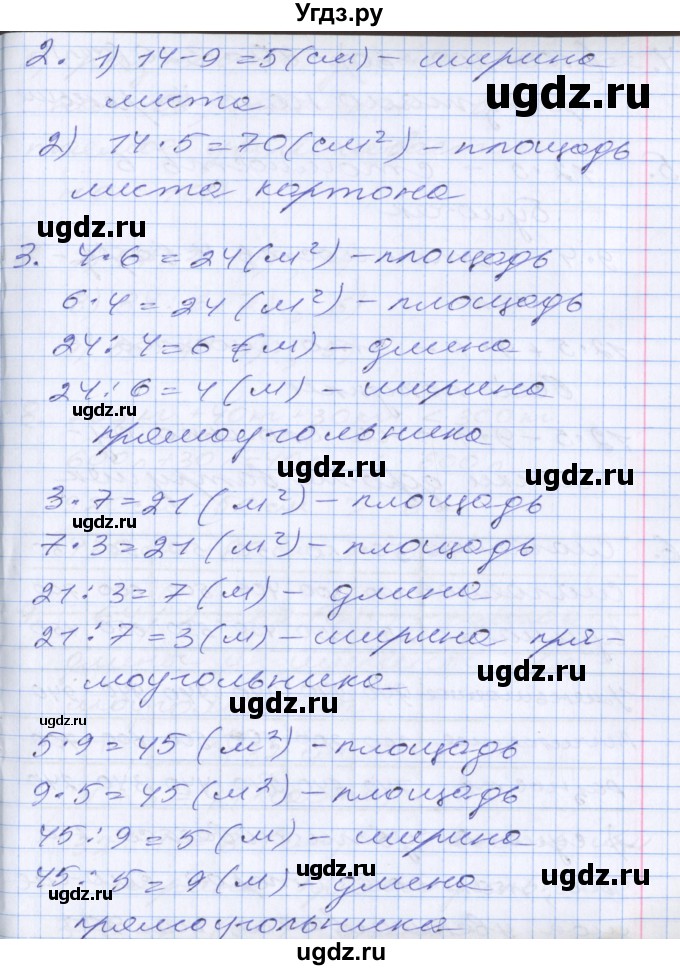 Угдз.ру
2. 1) 14-9=5(см) - ширина
ugdz.ru
листа
2) 14·5=70(см²) - площадь
листа картона
ugdz.ru
3. 4·6=24(м²) - площадь
6·4=24(м²) - площадь
ugdz.ru
24:4=6(м) - длина
24:6=4(м) - ширина
ugdz.ru
прямоугольника
ugdz.ru
3·7=21(м²) - площадь
ugdz.ru
7·3=21(м²) - площадь
21:3=7(м) - длина
ugdz.ru
21:7=3(м) - ширина пря-
моугольника
ugdz.ru
ugdz.ru
5·9=45(м²) - площадь
9·5=45(м²) - площадь
ugdz.ru
45:9=5(м) - ширина
45:5=9(м) - длина
ugdz.ru
ugdz.ru
прямоугольника
ugdz.ru